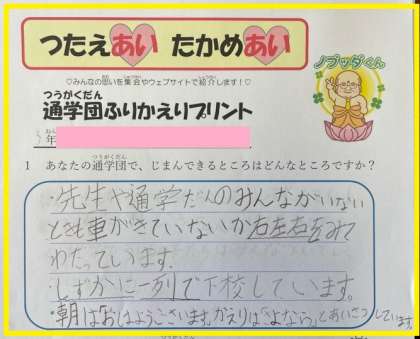 つたえあい たかめあい
♡みんなの思いを集会やウェブサイトで紹介します！♡
ノブッダくん
つうがくだん
通学団ふりかえりプリント
3年
1 あなたの通学団で、じまんできるところはどんなところですか？
・先生や通学だんのみんながいない
ときも車がきていないか右左右をみて
わたっています。
・しずかに一列で下校しています。
・朝は「おはようございます。かえりは「さよなら」とあいさつしています。